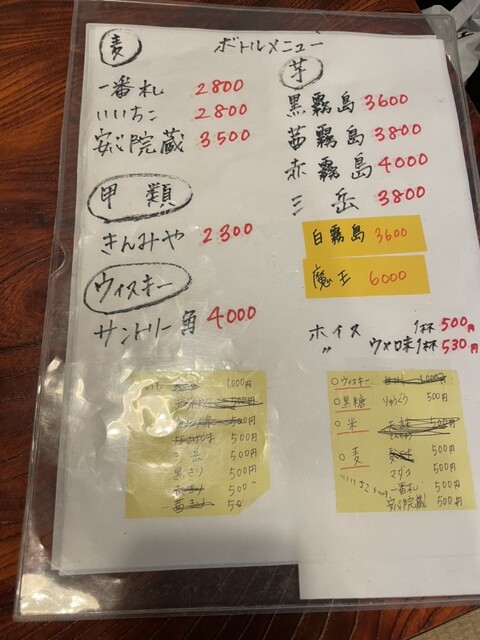 ボトルメニュー
麦
一番札 2800
いいちこ 2800
安心院蔵 3500
甲類
きんみや 2300
ウィスキー
サントリー角 4000
芋
黒霧島 3600
茜霧島 3800
赤霧島 4000
三岳 3800
白霧島 3600
魔王 6000
ホイス 1杯 500円
〃 ウメ味 1杯 530円
1,000円
500円
500円
500円
三岳 500円
黒きり 500円
500
○ウィスキー 1,000円
○黒糖 りゅうぐう 500円
○米 500円
○麦 500円
マダコ 500円
いいちこ
一番札 500円
安心院蔵 500円